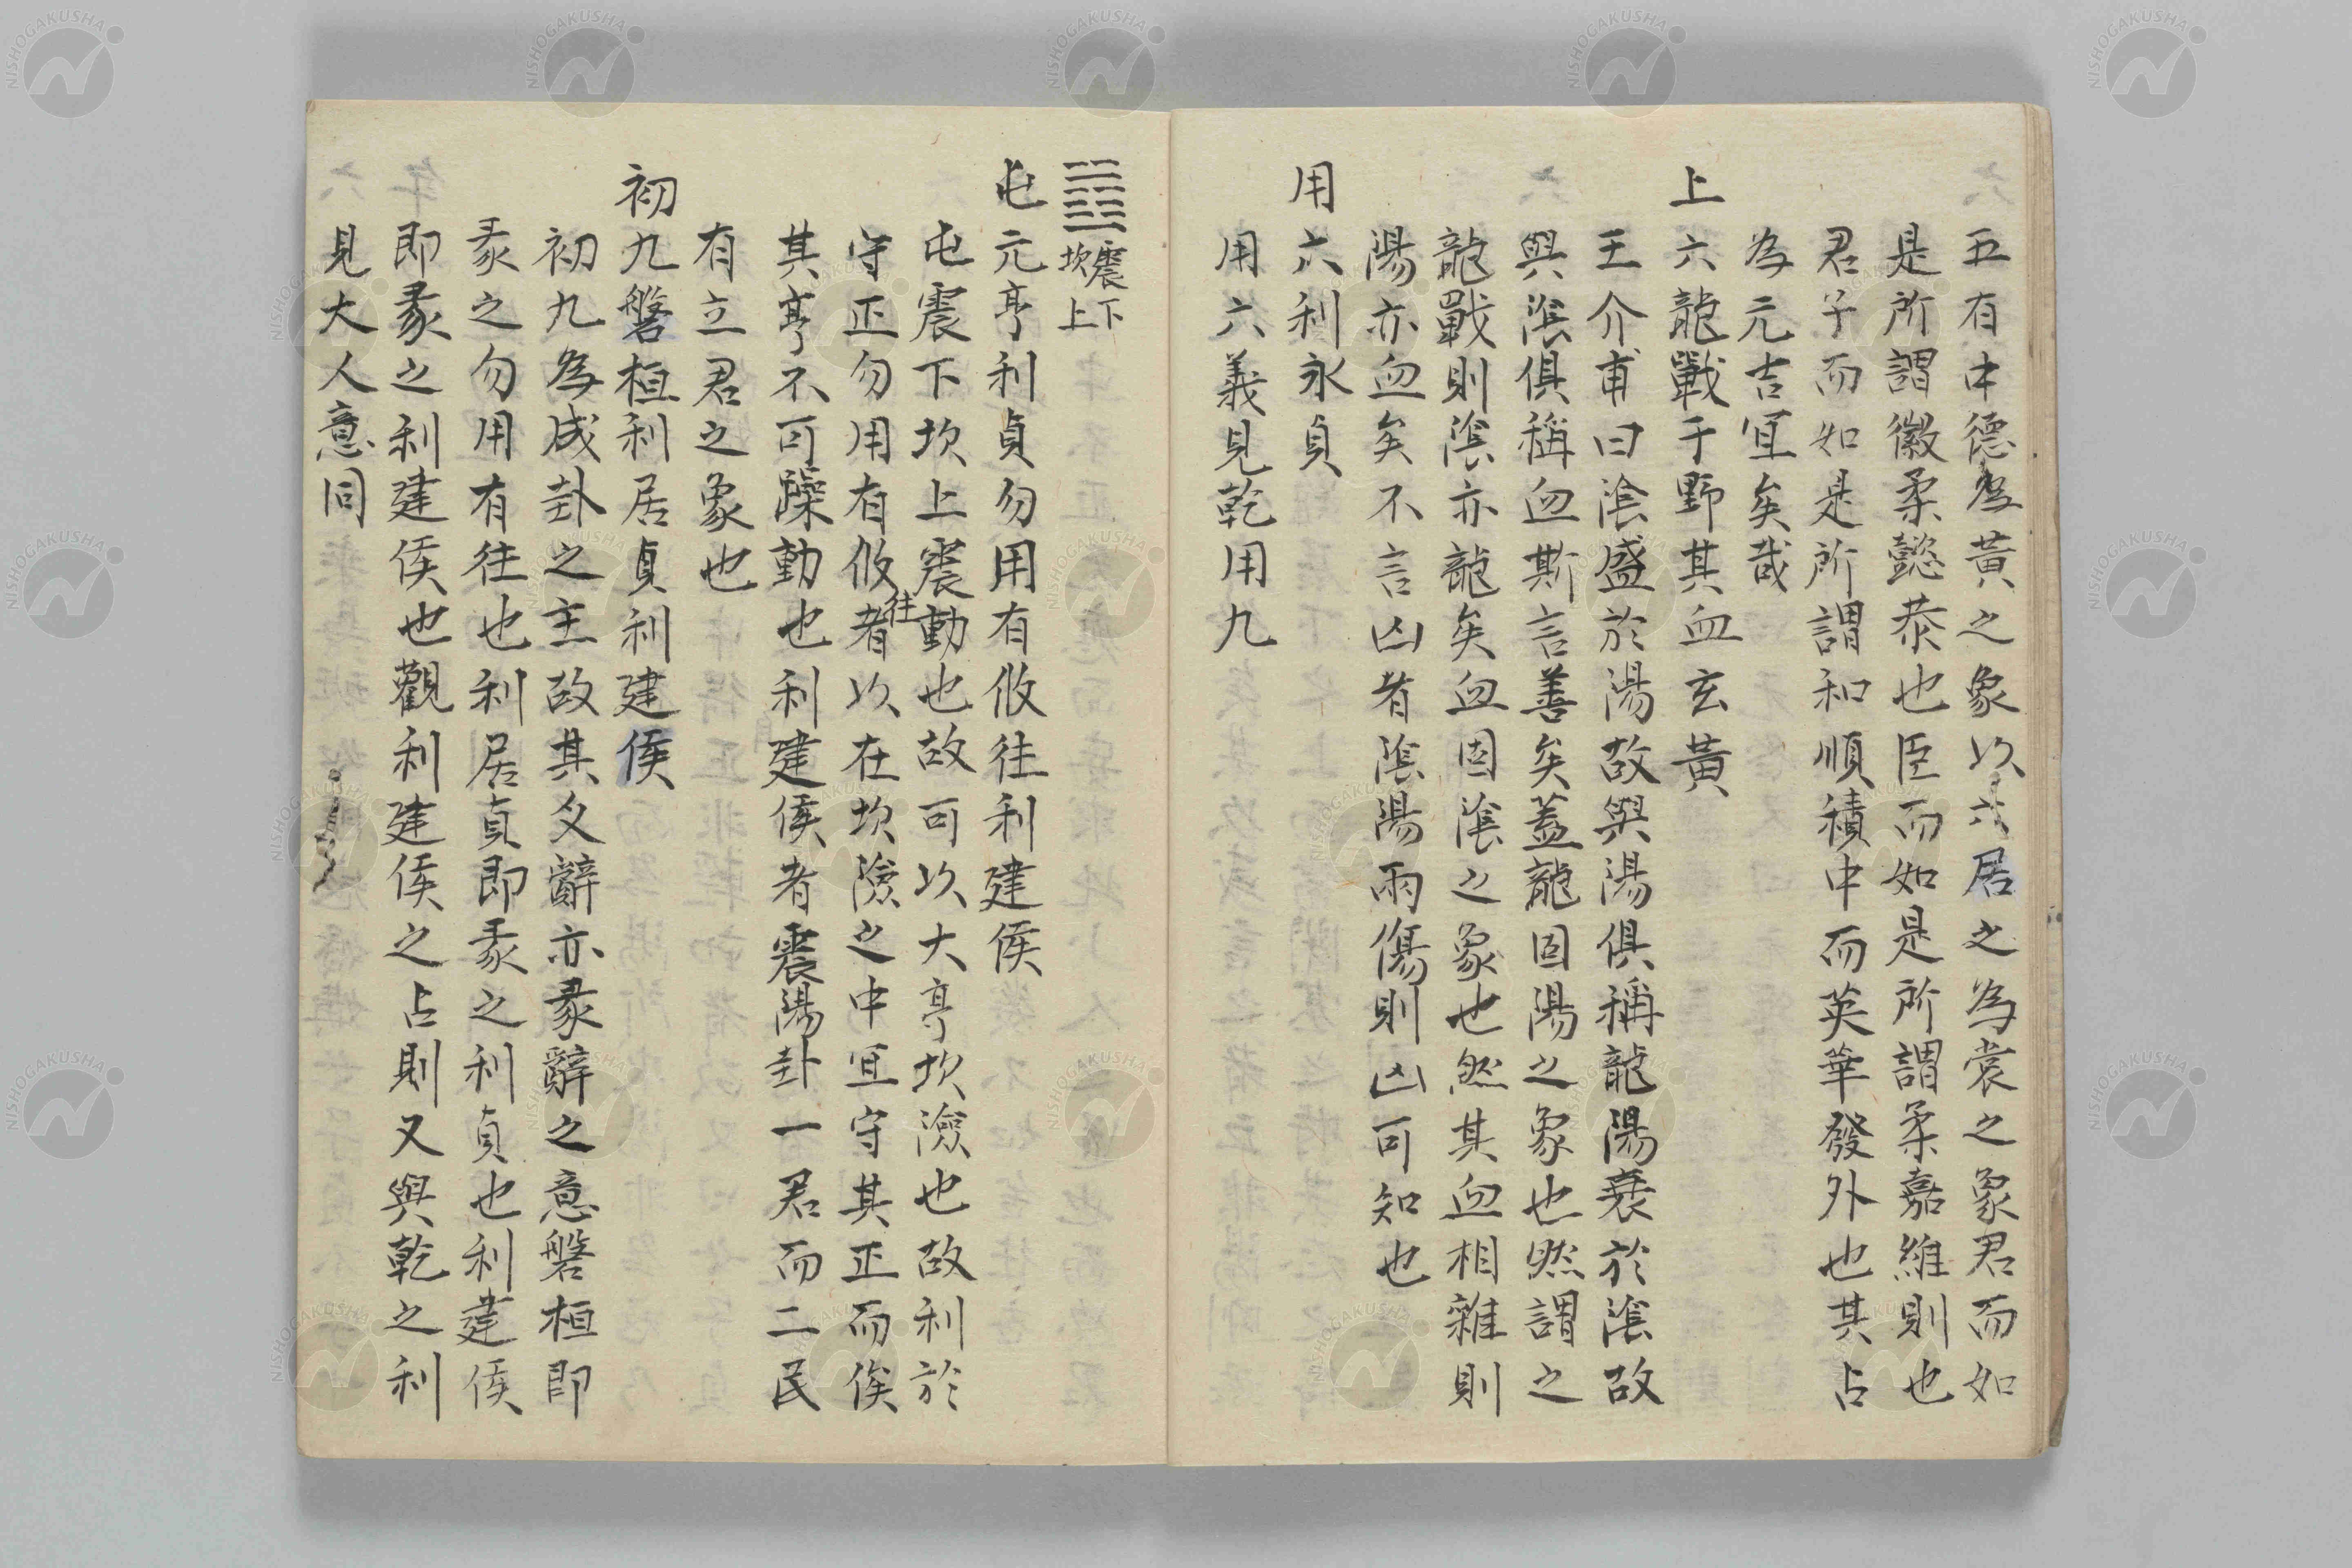 五有中德為黃之象以六居之為裳之象君而如
是所謂徽柔懿恭也臣而如是所謂柔嘉維則也
君子而如是所謂和順積中而英華發外也其占
為元吉宜矣哉
上六龍戰于野其血玄黃
王介甫曰陰盛於陽故與陽俱稱龍陽衰於陰故
與陰俱稱血斯言善矣蓋龍固陽之象也然謂之
龍戰則陰亦龍矣血固陰之象也然其血相雜則
陽亦血矣不言凶者陰陽兩傷則凶可知也
用六利永貞
用六義見乾用九
震下
坎上
屯元亨利貞勿用有攸往利建侯
屯震下坎上震動也故可以大亨坎險也故利於
守正勿用有攸往者以在坎險之中宜守其正而俟
其亨不可躁動也利建侯者震陽卦一君而二民
有立君之象也
初九磐桓利居貞利建侯
初九為成卦之主故其爻辭亦彖辭之意磐桓即
彖之勿用有往也利居貞即彖之利貞也利建侯
即彖之利建侯也觀利建侯之占則又與乾之利
見大人意同
NISHOGAKUSHA